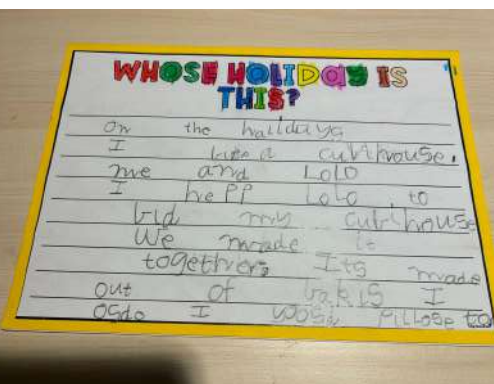 WHOSE HOLIDAY IS
THIS?
On the hallldays
I a cubhrouse.
me and Lolo
I hepp Lolo to
bid my cubhouse
We made it
together. Its made
out of I
osdo I pillose to